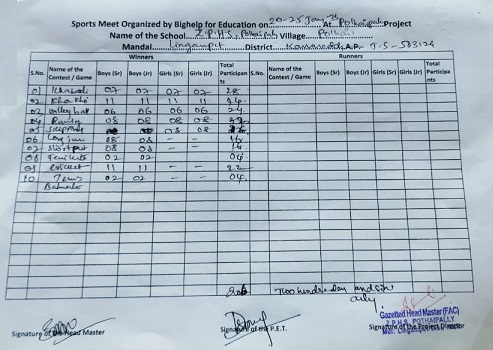 Sports Meet Organized by Bighelp for Education on 20-25 Jan At Pothaipally Project
Name of the School Z.P.H.S, Pothaipally Village
Mandal Lingampet District Kamareddy A.P. T.S - 503124
Winners Runners
S.No. Name of the Contest / Game Boys (Sr) Boys (Jr) Girls (Sr) Girls (Jr) Total Participants S.No. Name of the Contest / Game Boys (Sr) Boys (Jr) Girls (Sr) Girls (Jr) Total Participants
01 Kabaddi 07 07 07 07 28
02 Kho kho 11 11 11 11 44
03 Volley ball 06 06 06 06 24
04 Running 08 08 08 08
05 08 08
06 Long jump 08 08 - - 16
07 Short put 08 08 - - 16
08 02 02 04
09 Cricket 11 11 - - 22
10 02 02 - - 04
206 Two hundred and six
only.
Gazetted Head Master (FAC)
Z.P.H.S. POTHAIPALLY
Signature of the Head Master Signature of the P.E.T. Signature of the Project Director